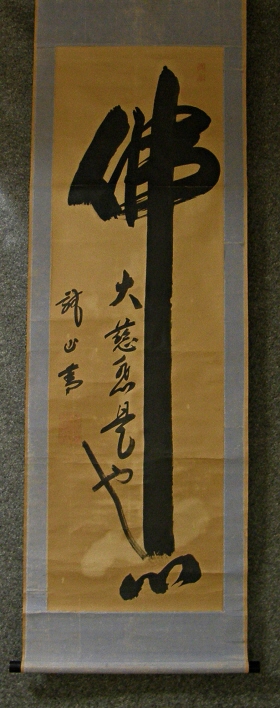 佛心
大慈悲是也
山書